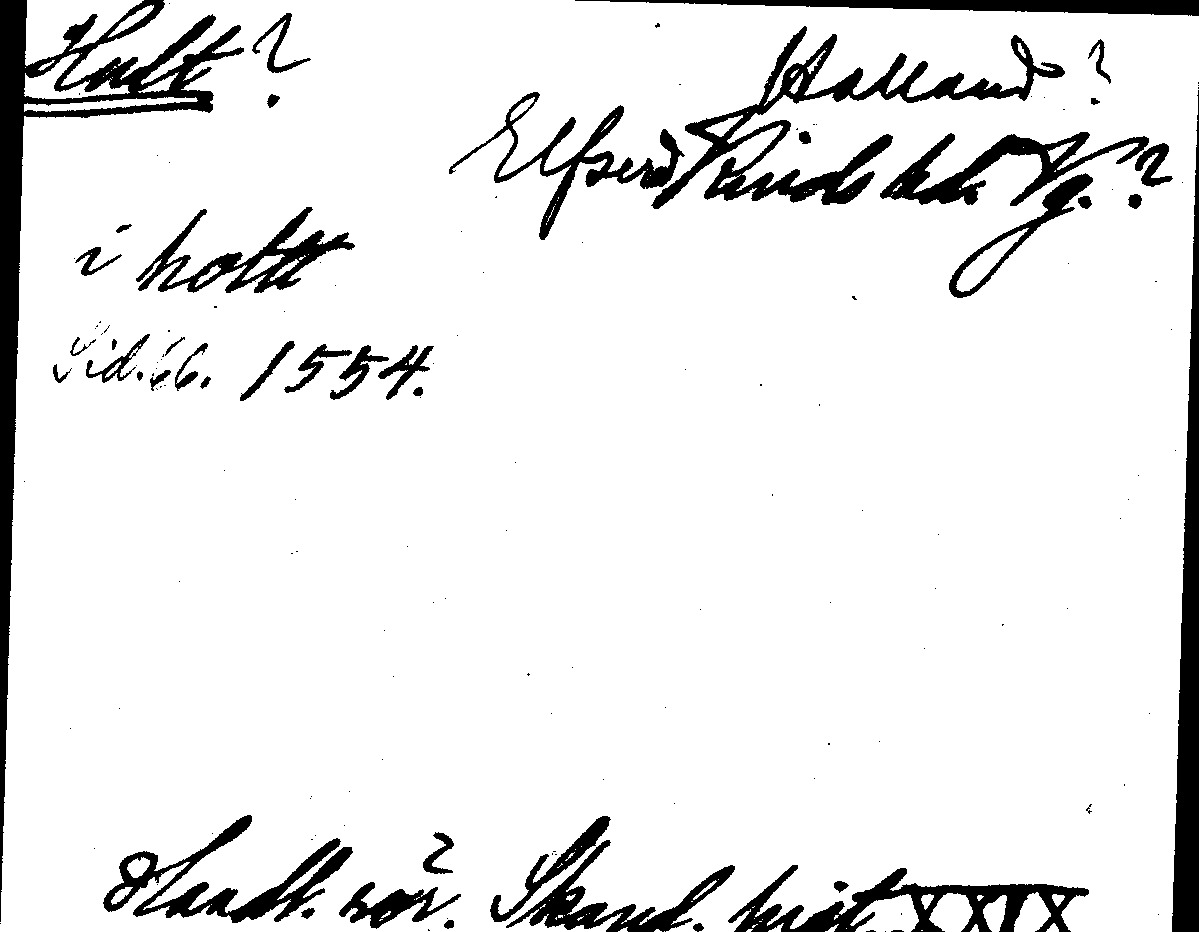 Hult? Halland?
Elfsered Kinds hd. Vg.?
i hollt
Sid. 66. 1554.
Handl. rör. Skand. hist. XXIX